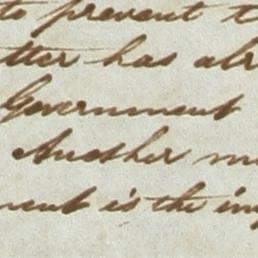 to prevent t
tter has alr
Government
Another m
ment is the in